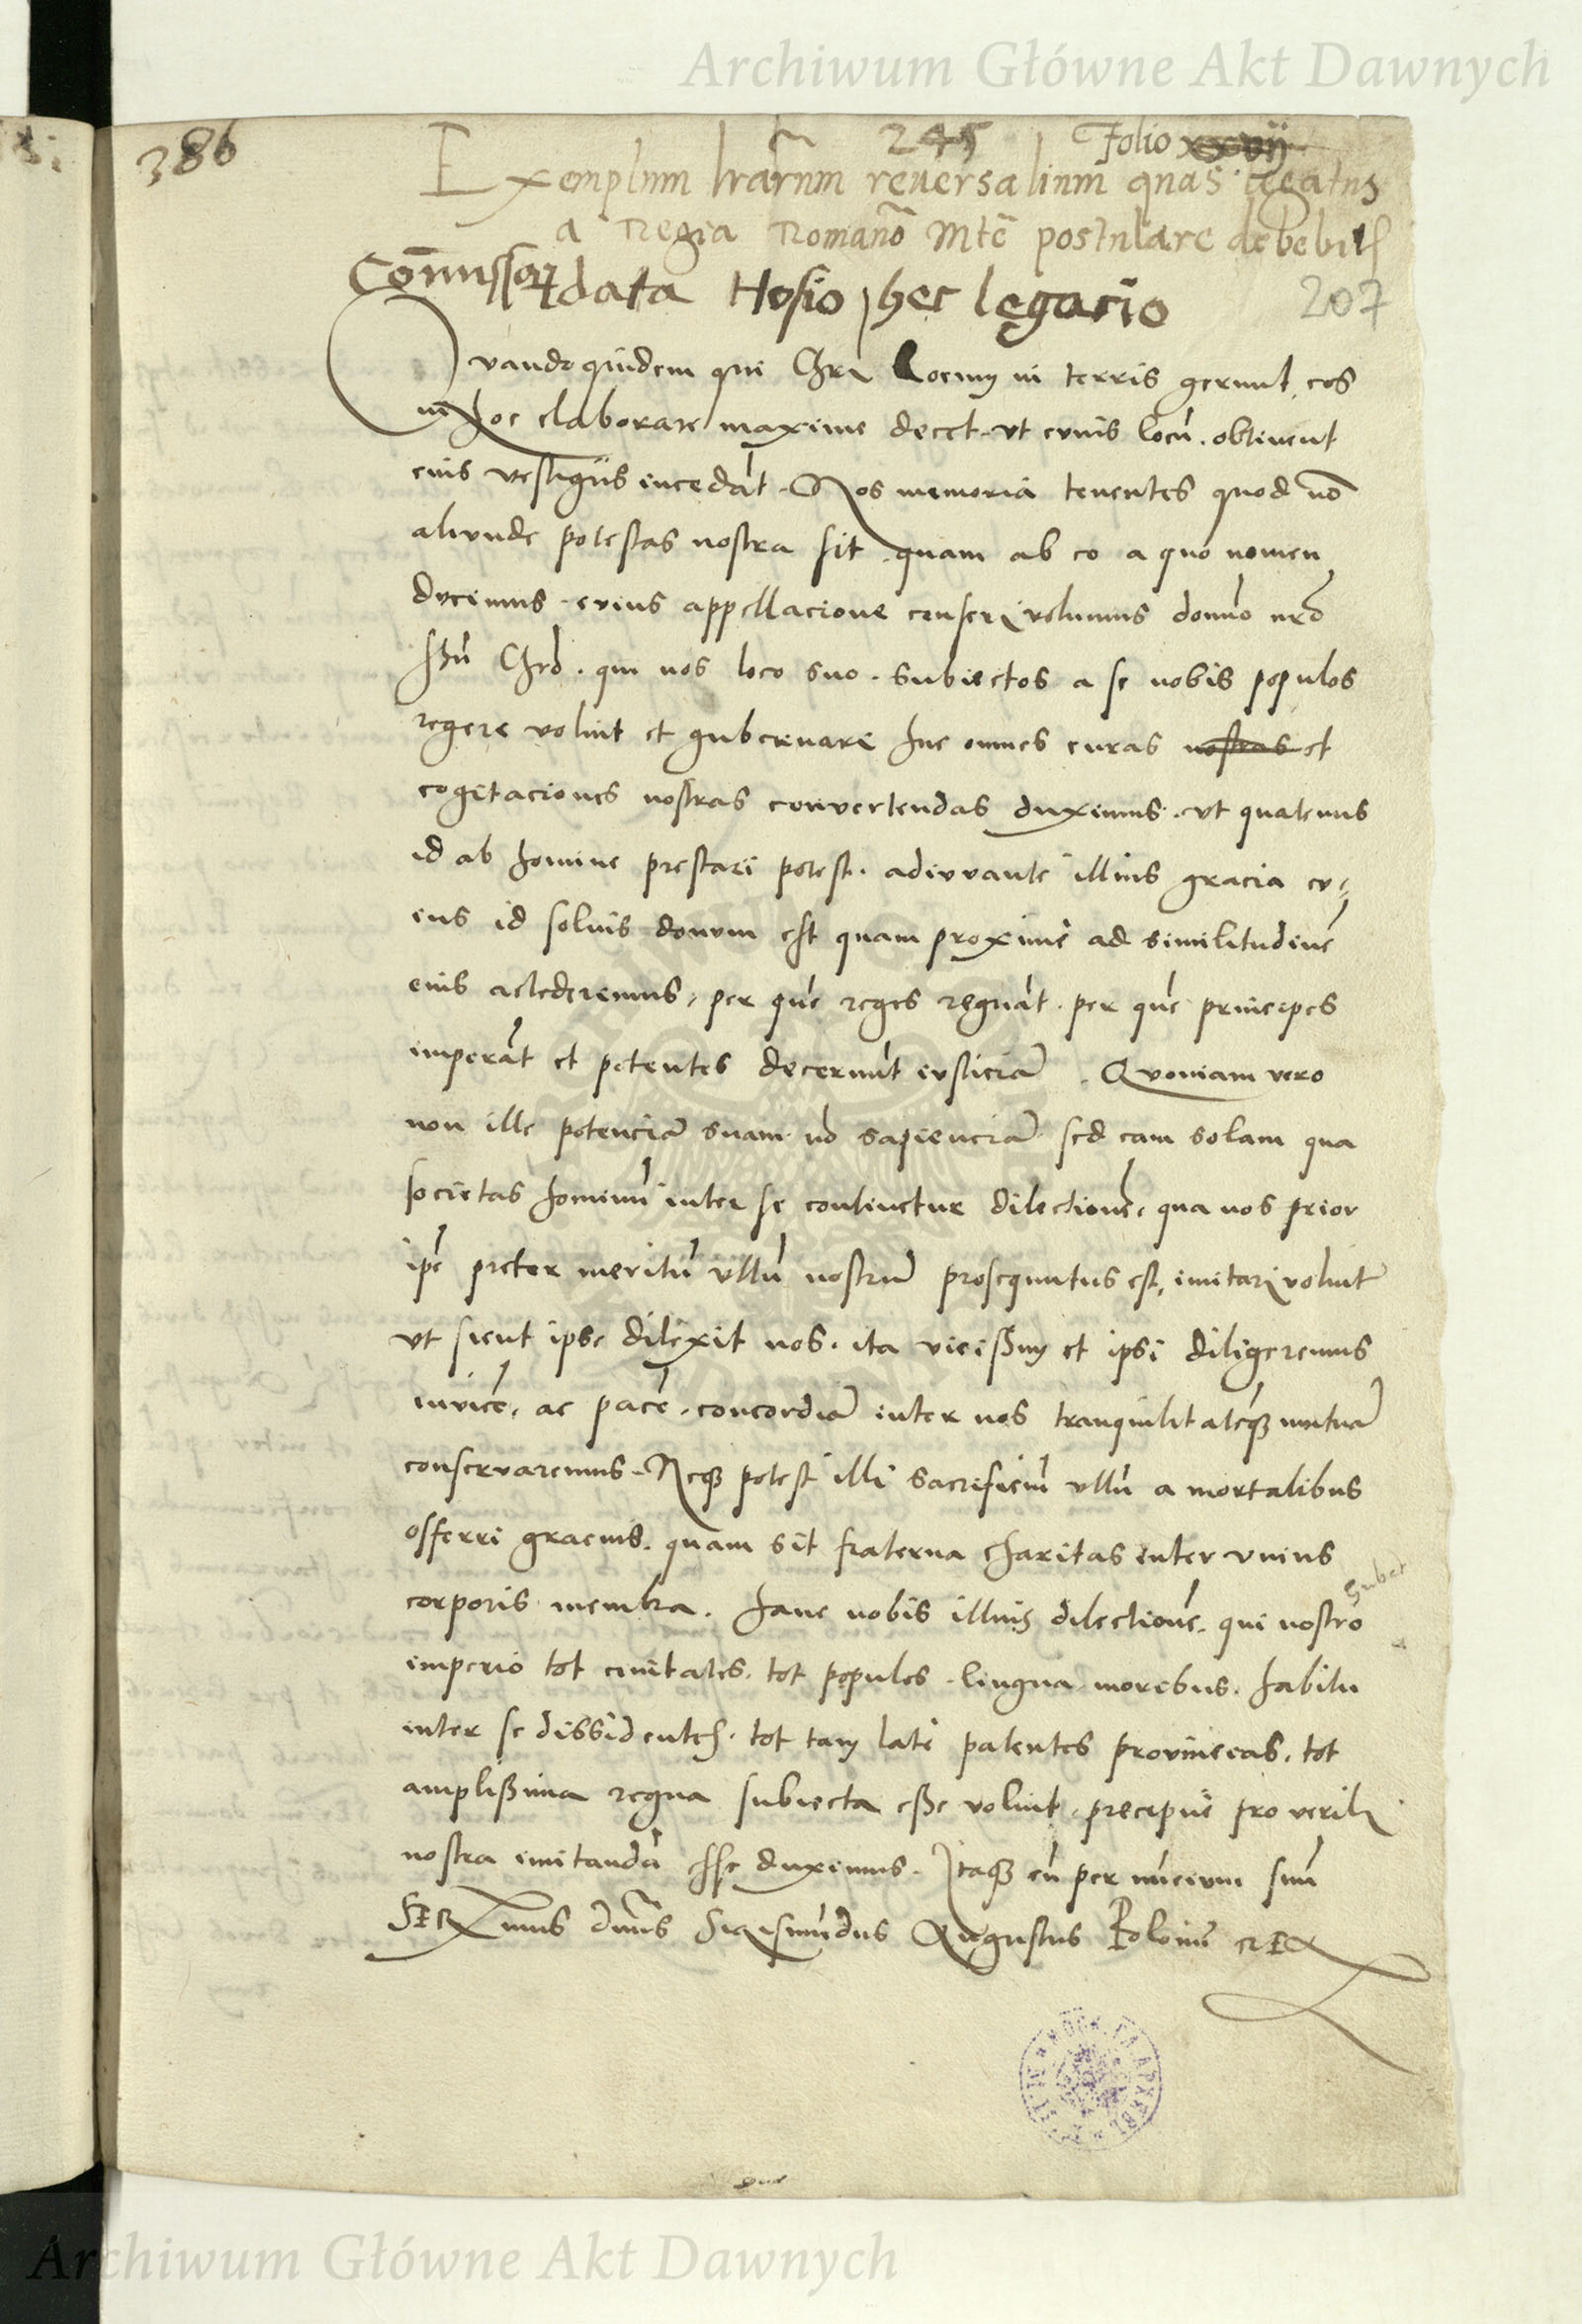 Archiwum Główne Akt Dawnych
386
245 Folio
Exemplum lrarum reuersalium quas legatus
a Regia Romano Mte postulare debebit
Commissor data Hosio, hec legacio
207
Qvandoquidem qui Chri locum in terris gerunt, eos
in hoc elaborare maxime decet. vt cuius locu. obtinent
eius vestigiis incedat. Nos memoria tenentes quod no
aliunde potestas nostra sit. quam ab eo a quo nomen
ducimus. cuius appellacione censeri volumus domino nro
Ihu Chro. qui nos loco suo. subiectos a se nobis populos
regere voluit et gubernare huc omnes curas nostras et
cogitaciones nostras convertendas duximus. vt quatenus
id ab homine prestari potest. adiuuante illius gracia cu-
ius id solius donum est quam proxime ad similitudine
eius accederemus, per que reges regnat. per que principes
imperat et potentes decernut iusticia. Quoniam vero
non ille potencia suam no sapiencia sed eam solam qua
societas hominu inter se continetur dilectione, qua nos prior
ipe preter meritu vllu nostru prosequutus est, imitari voluit
vt sicut ipse dilexit nos. ita vicissim et ipsi diligeremus
invice, ac pace. concordia inter nos tranquilitateq mutua
conservaremus. Neq potest illi sacrificiu vllu a mortalibus
offerri gracius. quam sit fraterna charitas inter vnius
corporis membra. hanc nobis illius dilectione. qui nostro
imperio tot ciuitates. tot populos. lingua moribus. habitu
inter se dissidentes. tot tam late patentes provincias. tot
amplissima regna subiecta esse voluit. precipue pro virili
nostra imitanda esse duximus. Itaq cu per nucium suu
SERENmus dnus Sigismudus Augustus Poloniae REX
Archiwum Główne Akt Dawnych